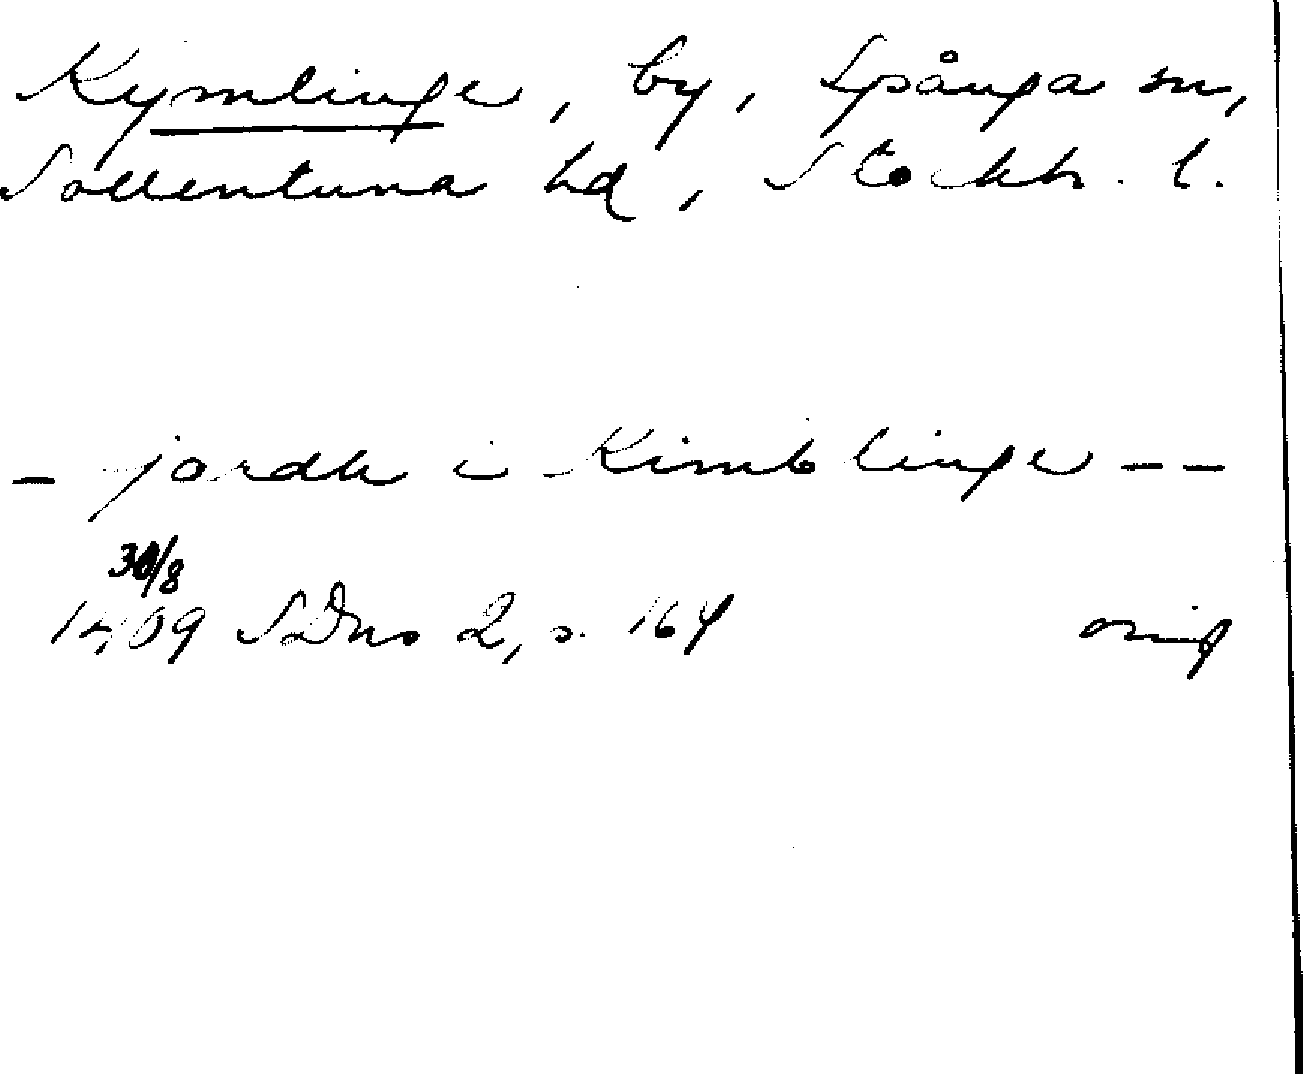 Kymlinge, by, Spånga sn,
Sollentuna hd, Stockh. l.
– jordh i Kimblinge – –
30/8
1409 SDns 2, s. 164
orig